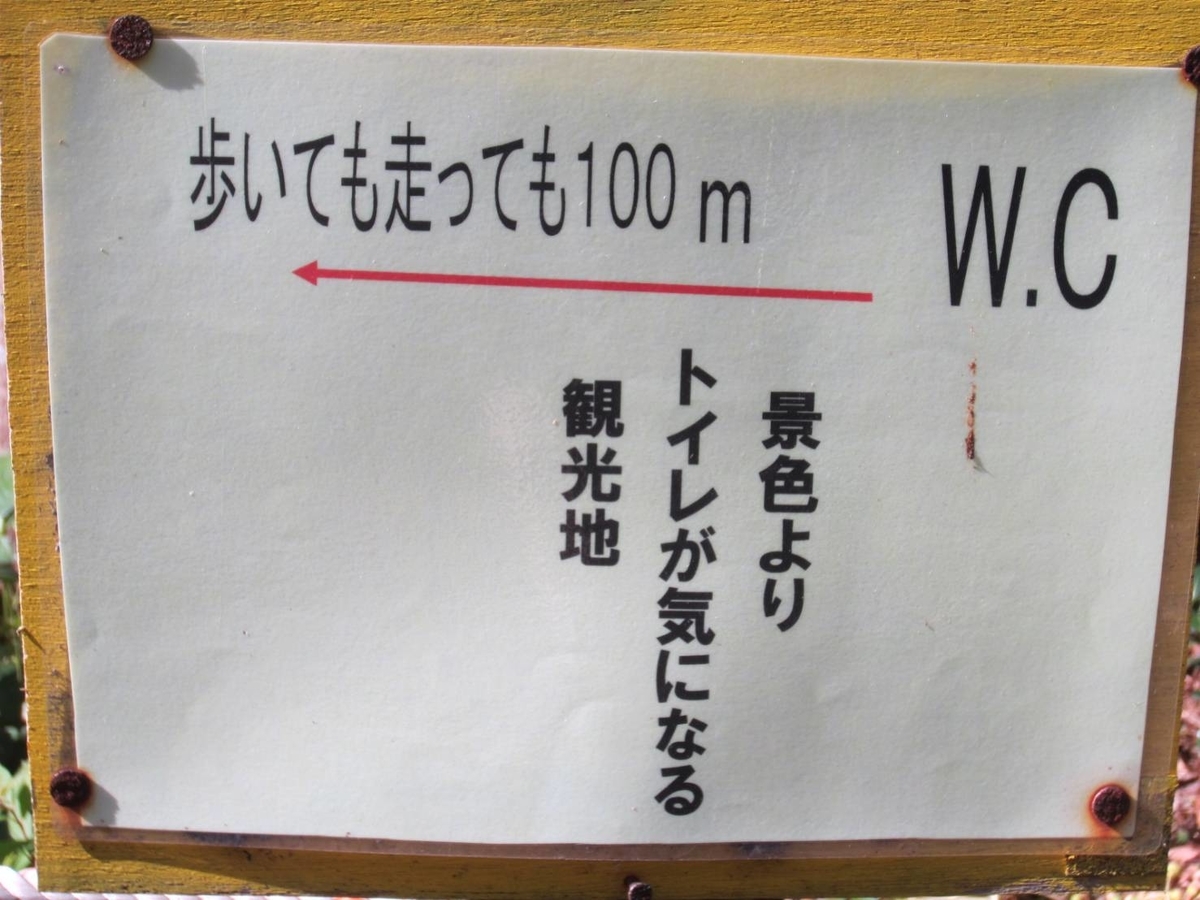 歩いても走っても100m
W.C
景色より
トイレが気になる
観光地